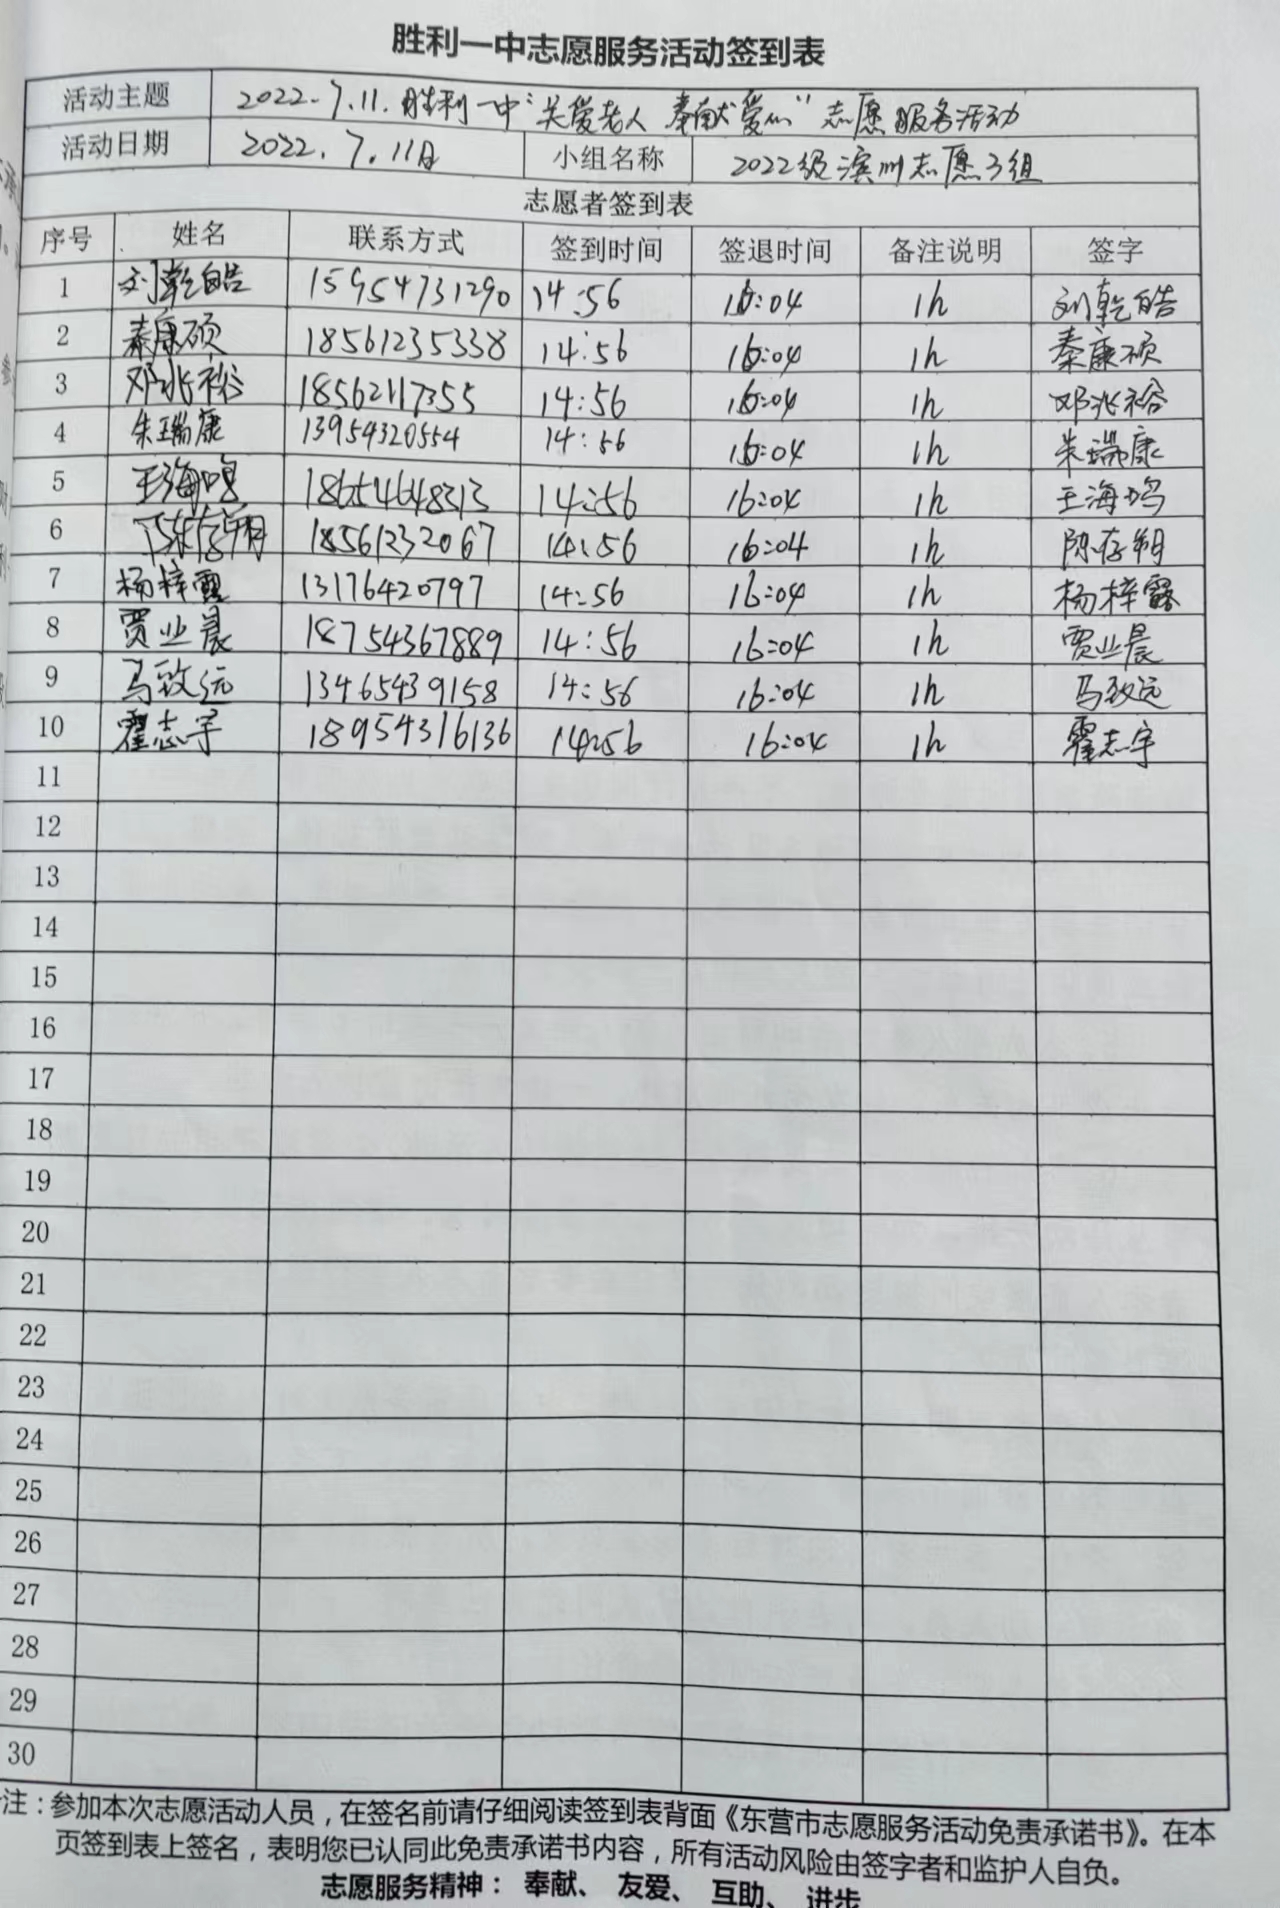 胜利一中志愿服务活动签到表
活动主题 2022.7.11.胜利一中"关爱老人 奉献爱心"志愿服务活动
活动日期 2022.7.11日 小组名称 2022级滨州志愿3组
志愿者签到表
序号 姓名 联系方式 签到时间 签退时间 备注说明 签字
1 刘乾皓 15954731290 14:56 16:04 1h 刘乾皓
2 秦康硕 18561235338 14:56 16:04 1h 秦康硕
3 邓兆裕 18562117355 14:56 16:04 1h 邓兆裕
4 朱瑞康 13954320554 14:56 16:04 1h 朱瑞康
5 王海鸣 18654648313 14:56 16:04 1h 王海鸣
6 陈存朔 18561232067 14:56 16:04 1h 陈存朔
7 杨梓露 13176420797 14:56 16:04 1h 杨梓露
8 贾业晨 18754367889 14:56 16:04 1h 贾业晨
9 马致远 13465439158 14:56 16:04 1h 马致远
10 霍志宇 18954316136 14:56 16:04 1h 霍志宇
11
12
13
14
15
16
17
18
19
20
21
22
23
24
25
26
27
28
29
30
注：参加本次志愿活动人员，在签名前请仔细阅读签到表背面《东营市志愿服务活动免责承诺书》。在本
页签到表上签名，表明您已认同此免责承诺书内容，所有活动风险由签字者和监护人自负。
志愿服务精神： 奉献、 友爱、 互助、 进步